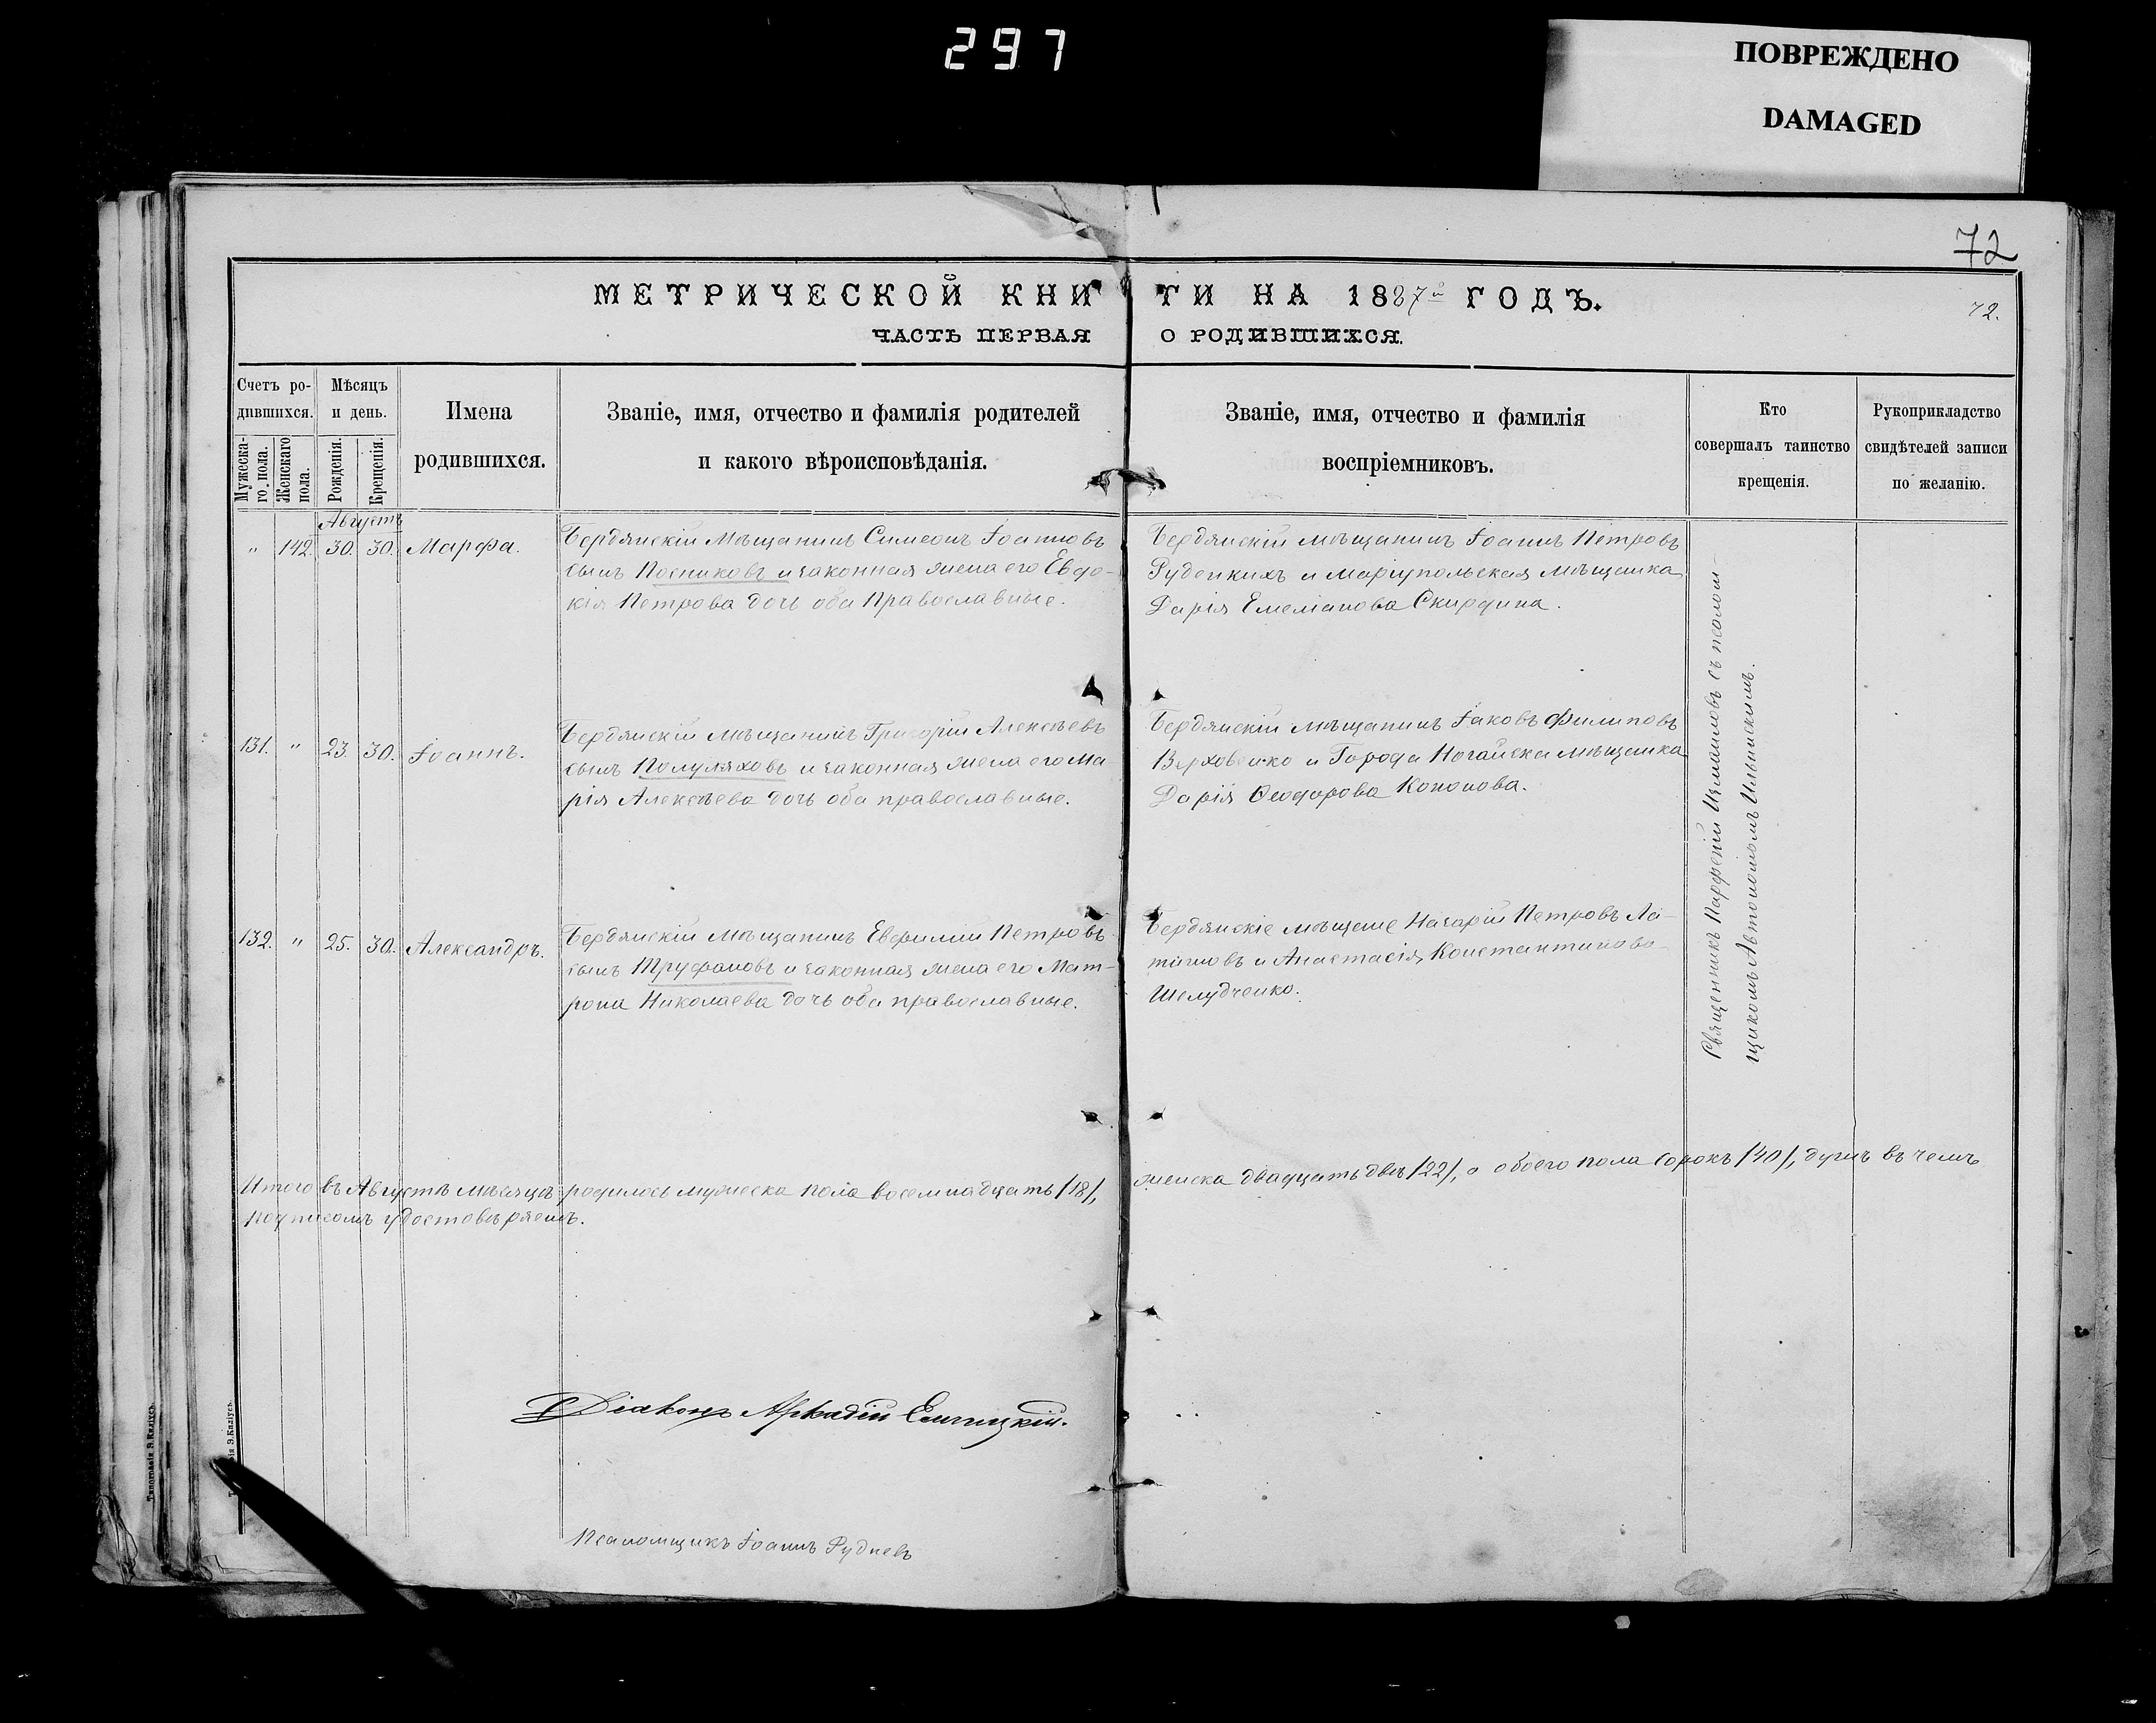 297
ПОВРЕЖДЕНО
DAMAGED
72
МЕТРИЧЕСКОЙ КНИГИ НА 1887й ГОДЪ.
72.
ЧАСТЬ ПЕРВАЯ О РОДИВШИХСЯ.
Счетъ ро-
дившихся.
Мужеска-
го пола.
Женскаго
пола.
Мѣсяцъ
и день.
Рожденія.
Крещенія.
Имена
родившихся.
Званіе, имя, отчество и фамилія родителей
и какого вѣроисповѣданія.
Званіе, имя, отчество и фамилія
воспріемниковъ.
Кто
совершалъ таинство
крещенія.
Рукоприкладство
свидѣтелей записи
по желанію.
Августъ
" 142. 30. 30. Марфа.
Бердянскій Мѣщанинъ Симеонъ Іоанновъ
сынъ Посниковъ и законная жена его Евдо-
кія Петрова дочь оба Православные.
Бердянскій мѣщанинъ Іоаннъ Петровъ
Руденкихъ и Маріупольская Мѣщанка
Дарія Емеліанова Скирдина.
131. " 23. 30. Іоаннъ.
Бердянскій Мѣщанинъ Григорій Алексѣевъ
сынъ Полуляховъ и законная жена его Ма-
рія Алексѣева дочь оба православные.
Бердянскій мѣщанинъ Іаковъ Филиповъ
Верховенко и Города Ногайска мѣщанка
Дарія Ѳеодорова Кононова.
132. " 25. 30. Александръ.
Бердянскій мѣщанинъ Евфимій Петровъ
сынъ Труфановъ и законная жена его Мат-
рона Николаева дочь оба православные.
Бердянскіе мѣщане Назарій Петровъ Ла-
и Анастасія Константинова
Шелудченко.
Священникъ Парфеній съ псалом-
щикомъ Автономомъ Ильинскимъ.
Итого въ Августѣ мѣсяцѣ родилось мужеска пола восемнадцать /18/, женска двадцать двѣ /22/, а обоего пола сорокъ /40/, душъ въ чемъ
подписомъ удостовѣряемъ.
Діаконъ Аркадій
Псаломщикъ Іоаннъ Рудневъ
Типографія Э.Килиусъ.